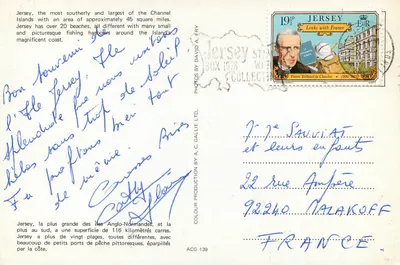 Jersey, the most southerly and largest of the Channel
Islands with an area of approximately 45 square miles.
Jersey has over 20 beaches, all different with many small
and picturesque fishing harbours around the Island's
magnificent coast.
Bon souvenir de
l'Ile Jersey. Ile
splendide que nous visitons
hélas sans trop de soleil
Il a profitons bien tout
de même.
Grosses Bises
Cathy
Jersey, la plus grande des îles Anglo-Normandes et la
plus au sud, a une superficie de 116 kilomètres carrés.
Jersey a plus de vingt plages, toutes différentes, avec
beaucoup de petits ports de pêche pittoresques, éparpillés
par la côte.
PHOTO BY DAVID C. FRY
COLOUR PRODUCTION BY A. C. GALLIE LTD.
ACG 139
Jersey
BOX 108
COLLECT
19P JERSEY
Links with France
M & Me SAUVIAT
et leurs enfants
22 rue Ampère
92240 MALAKOFF
FRANCE